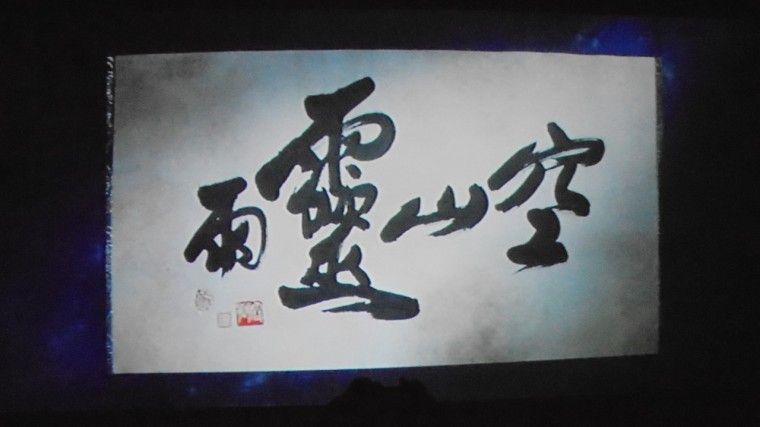 空山靈雨